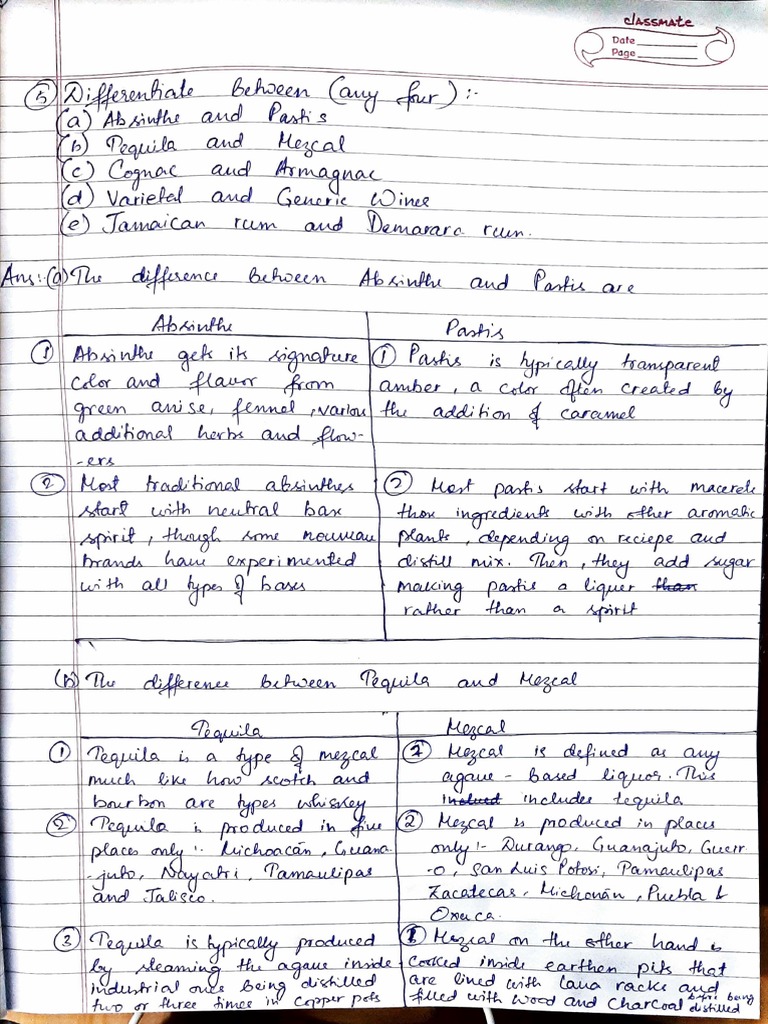 classmate
Date
Page
(5) Differentiate between (any four) :-
(a) Absinthe and Pastis
(b) Tequila and Mezcal
(c) Cognac and Armagnac
(d) Varietal and Generic Wines
(e) Jamaican rum and Demarara rum.
Ans:-(a) The difference between Absinthe and Pastis are
Absinthe
(1) Absinthe gets its signature
color and flavor from
green anise, fennel, various
additional herbs and flow-
-ers
(2) Most traditional absinthes
start with neutral base
spirit, though some nouveau
brands have experimented
with all types of bases
Pastis
(1) Pastis is typically transparent
amber, a color often created by
the addition of caramel
(2) Most pastis start with macerate
those ingredients with other aromatic
plants, depending on reciepe and
distill mix. Then, they add sugar
making pastis a liquer than
rather than a spirit
(b) The difference between Tequila and Mezcal
Tequila
(1) Tequila is a type of mezcal
much like how scotch and
bourbon are types whiskey
(2) Tequila is produced in five
places only :- Michoacán, Guana
-juto, Nayatri, Tamaulipas
and Jalisco.
(3) Tequila is typically produced
by steaming the agave inside
industrial ons being distilled
two or three times in copper pots
Mezcal
(1) Mezcal is defined as any
agave - based liquor. This
includes tequila
(2) Mezcal is produced in places
only :- Durango, Guanajuto, Guerr
-o, San Luis Potosi, Tamaulipas
Zacatecas, Michonán, Puebla &
Oxeuca.
(3) Mezcal on the other hand is
cooked inside earthen pits that
are lined with lava racks and
filled with wood and charcoal before being distilled